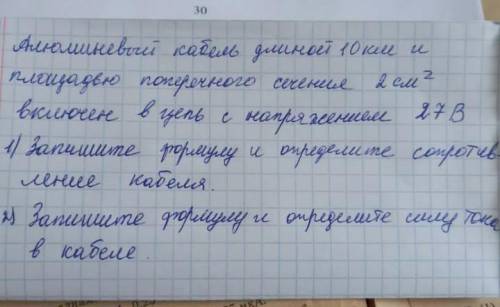 30
Алюминевый кабель длиной 10 км и
площадью поперечного сечения 2 см²
включен в цепь с напряжением 27В
1) Запишите формулу и определите сопротив-
ление кабеля.
2) Запишите формулу и определите силу тока
в кабеле.